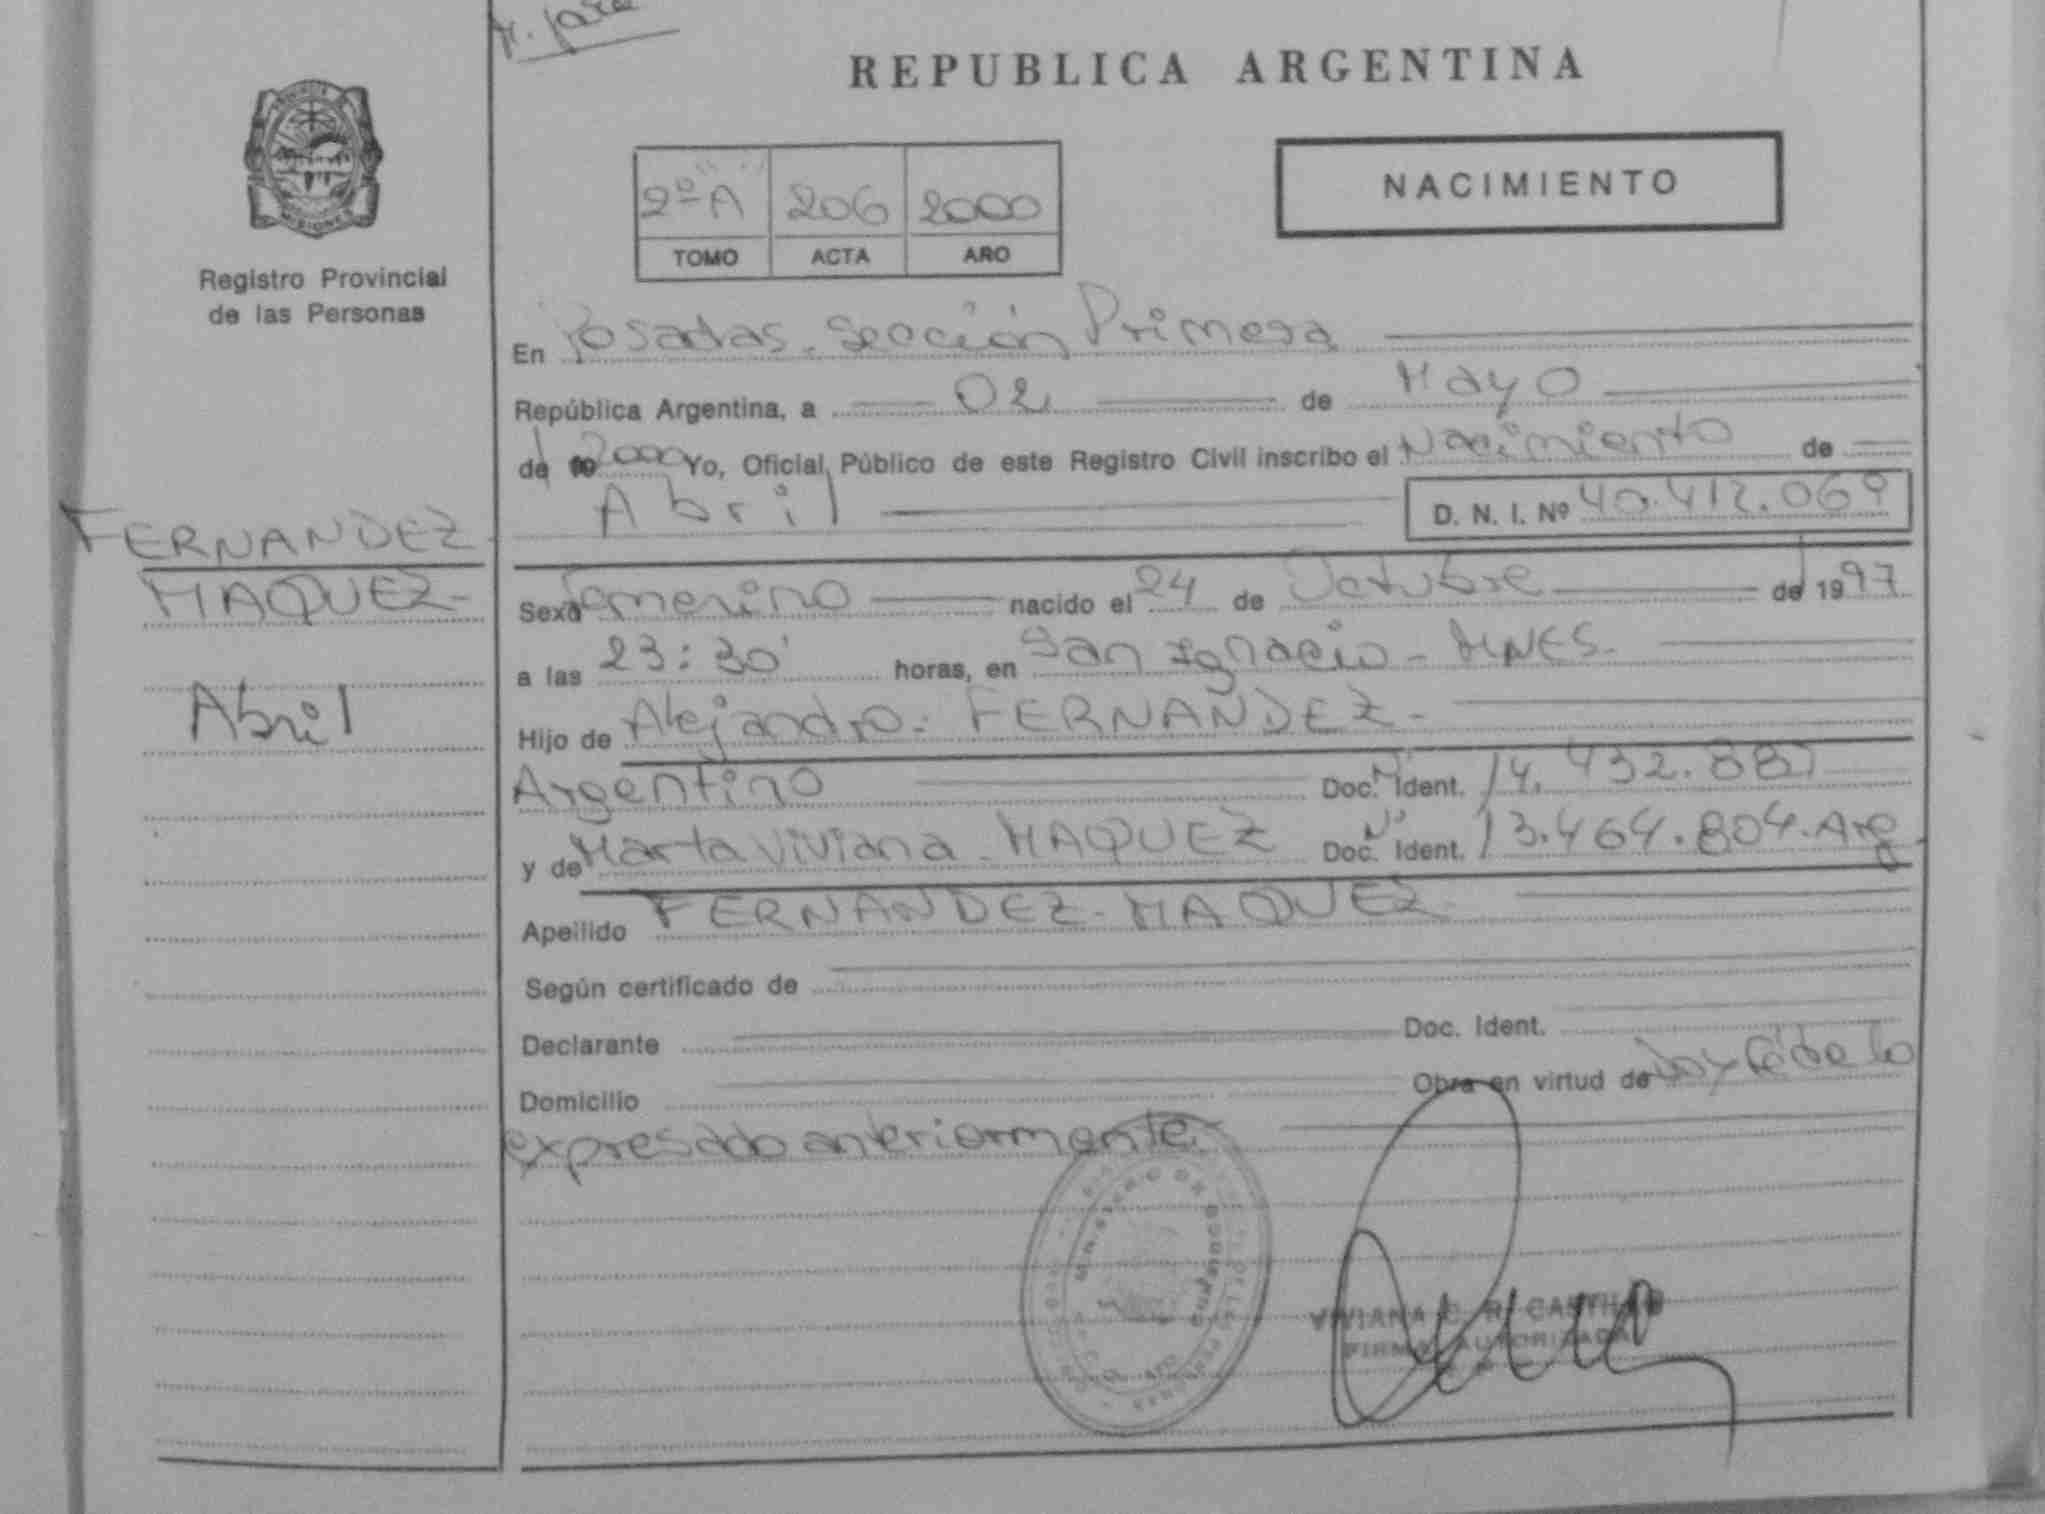 REPUBLICA ARGENTINA
PROVINCIA
MISIONES
Registro Provincial
de las Personas
NACIMIENTO
2º A 206 2000
TOMO ACTA AÑO
En Posadas. Sección Primera
República Argentina, a 02 de Mayo
del 2000 Yo, Oficial Público de este Registro Civil inscribo el Nacimiento de
Abril D. N. I. Nº 40.412.069
FERNANDEZ
MAQUEZ-
Abril
Sexo Femenino nacido el 24 de Octubre del 1997
a las 23:30' horas, en San Ignacio - MNES.
Hijo de Alejandro. FERNANDEZ-
Argentino Doc. Nº Ident. 14.432.887
y de Marta Viviana. MAQUEZ Doc. Nº Ident. 13.464.804. Arg
Apellido FERNANDEZ-MAQUEZ-
Según certificado de
Declarante Doc. Ident.
Domicilio Obra en virtud de Doy fé de lo
expresado anteriormente.
MINISTERIO DE GOBIERNO
VIVIANA C. R. CASTILLO
FIRMA AUTORIZADA